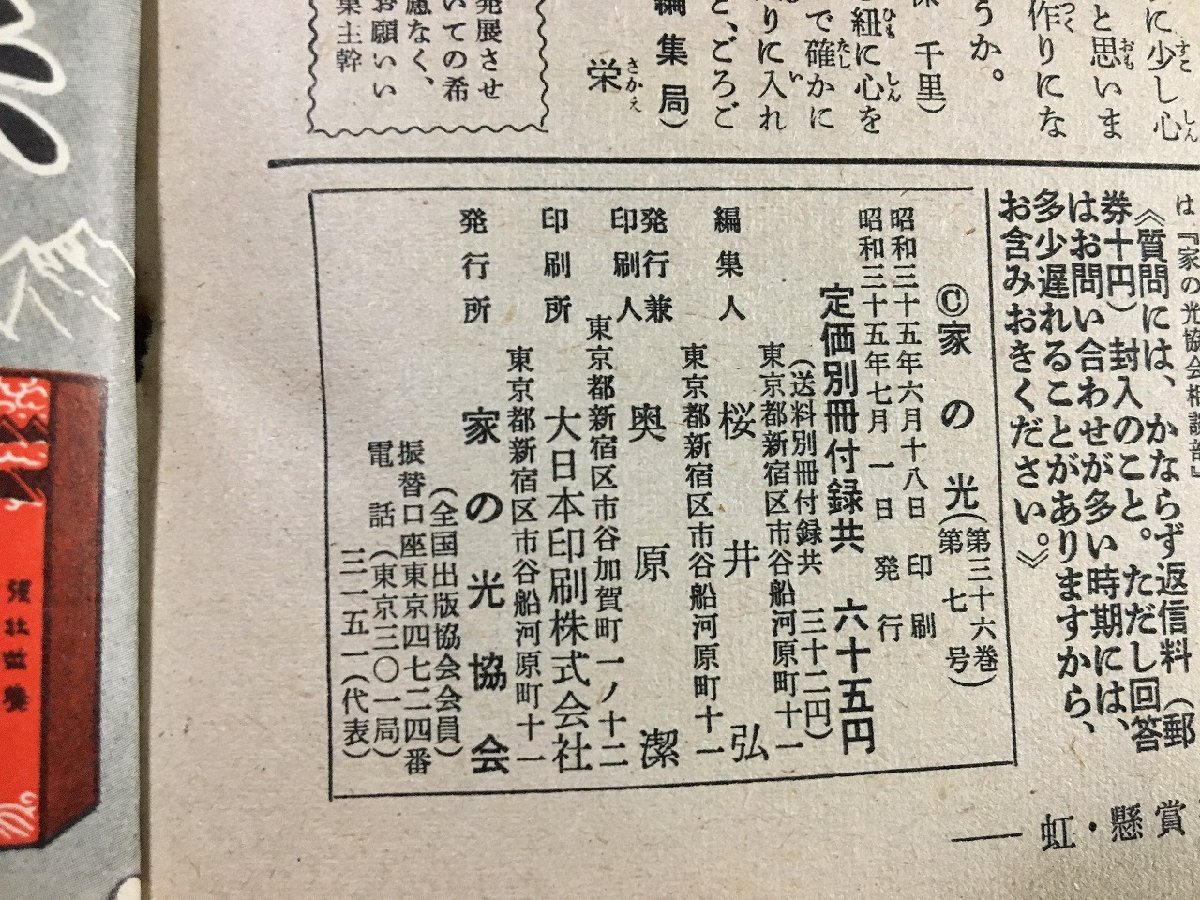 に少し心
と思いま
作りにな
うか。
千里)
紐に心を
で確かに
りに入れ
と、ごろご
編集局)
栄
発展させ
いての希
慮なく、
お願いい
集主幹
は『家の光協会相談部』
《質問には、かならず返信料(郵
券十円)封入のこと。ただし回答
はお問い合わせが多い時期には、
多少遅れることがありますから、
お含みおきください。》
©家の光(第三十六巻 第七号)
昭和三十五年六月十八日 印刷
昭和三十五年七月一日 発行
定価別冊付録共 六十五円
(送料別冊付録共 三十二円)
東京都新宿区市谷船河原町十一
編集人 桜井弘
東京都新宿区市谷船河原町十一
発行兼印刷人 奥原潔
東京都新宿区市谷加賀町一ノ十二
印刷所 大日本印刷株式会社
東京都新宿区市谷船河原町十一
発行所 家の光協会
(全国出版協会会員)
振替口座東京四七二四番
電話(東京三〇一局)
三一五一(代表)
虹・懸賞